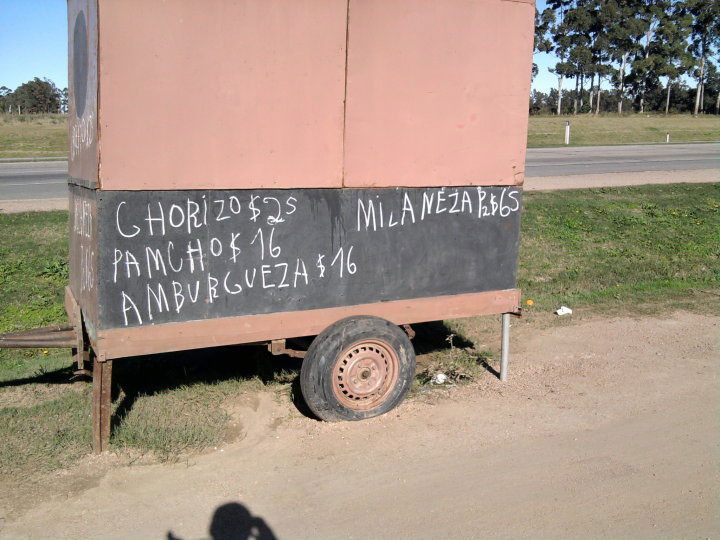 CHORIZO $25
PAMCHO $ 16
AMBURGUEZA $ 16
MILANEZA P2 $65